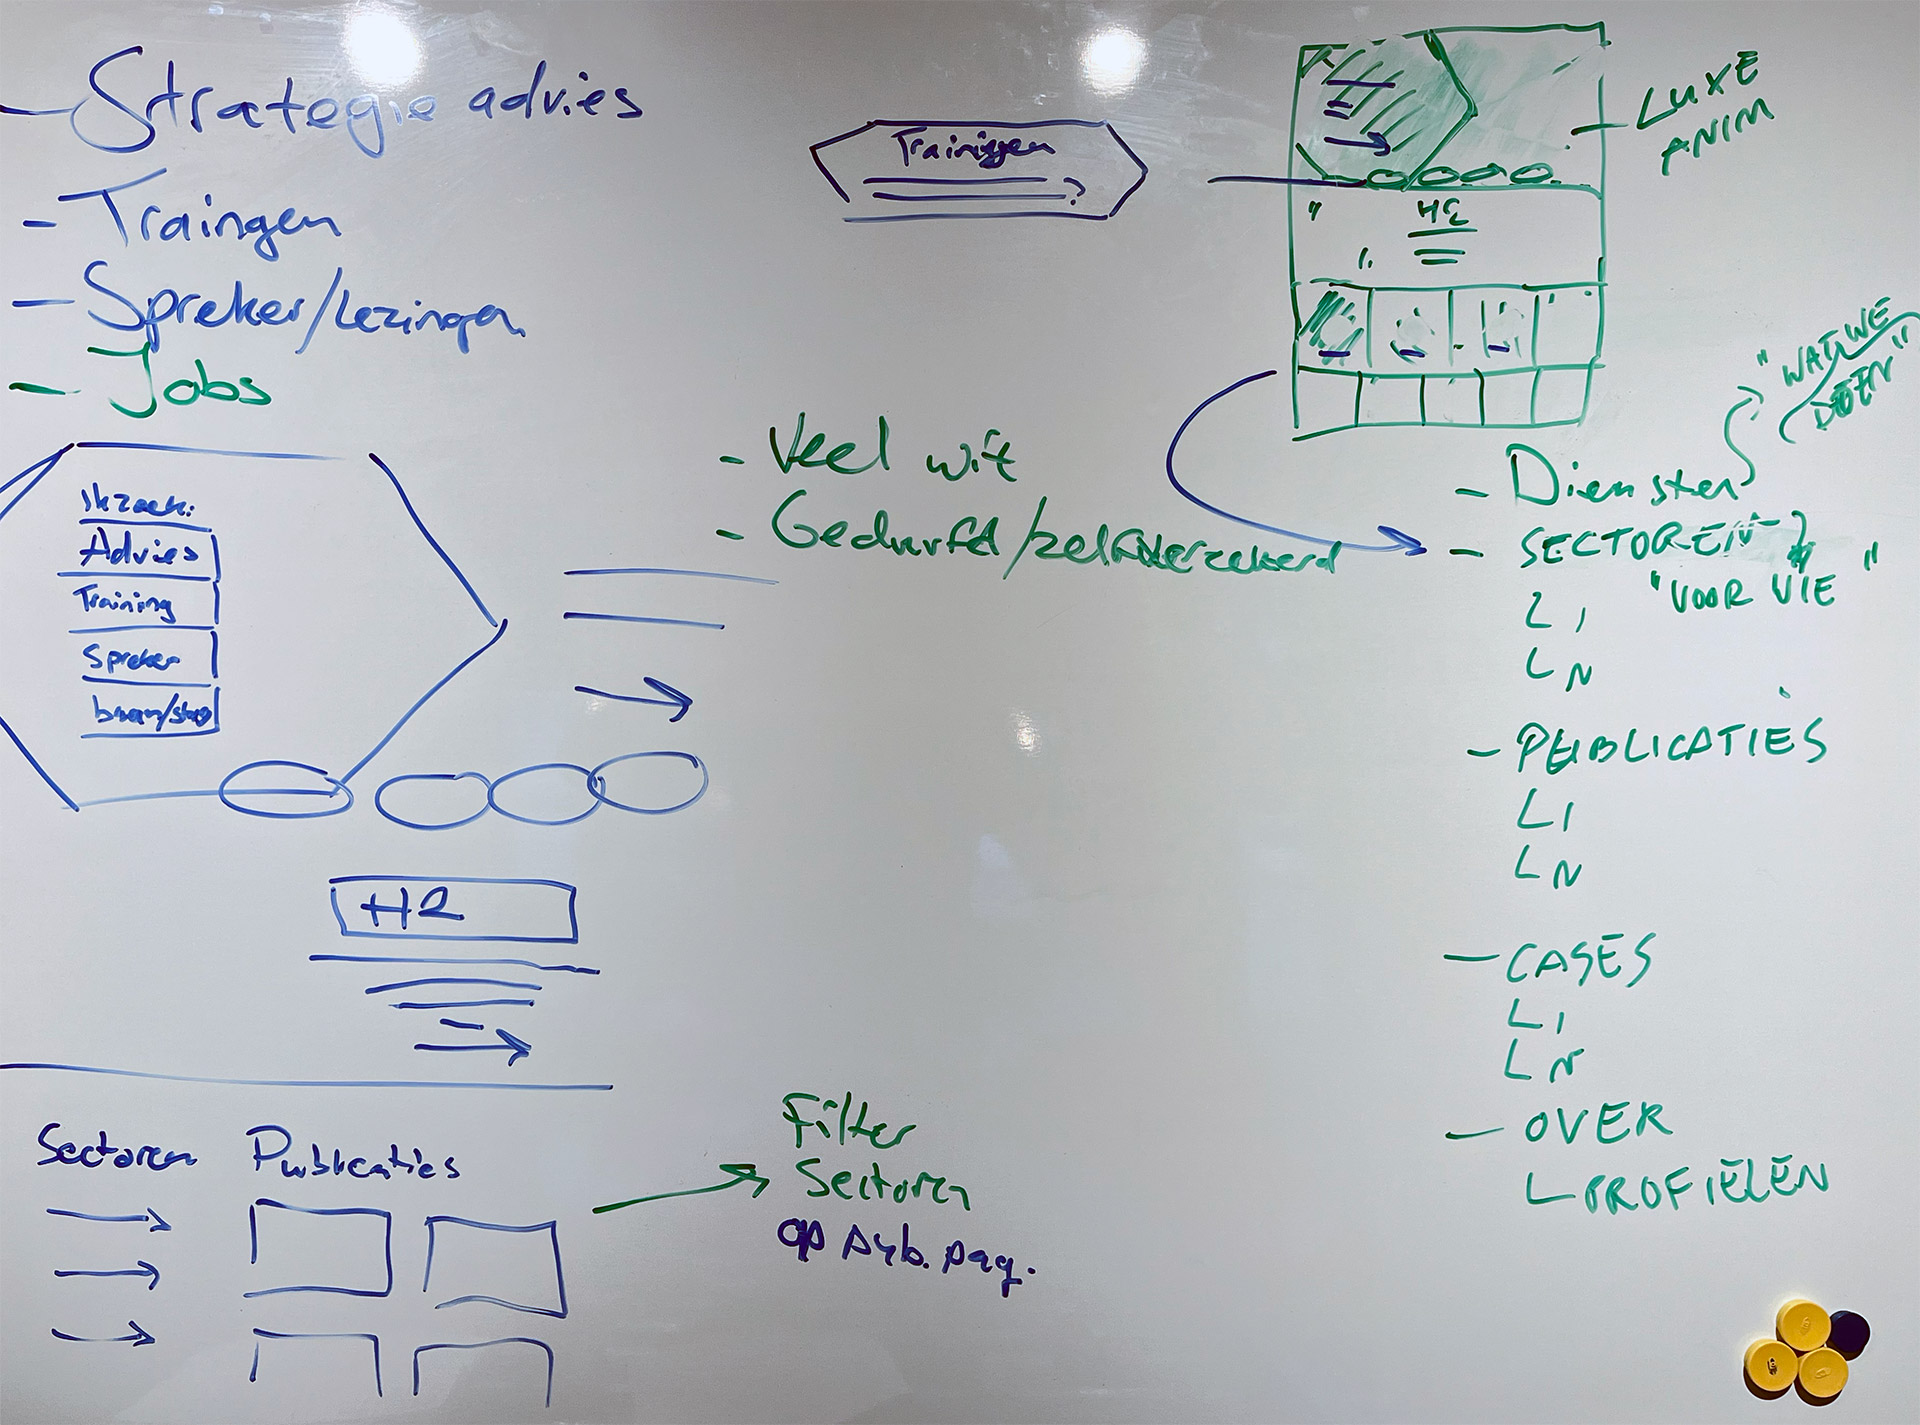 - Strategie advies
- Traingen
- Spreker/Lezingen
- Jobs
Ik zoek:
Advies
Training
Spreker
H2
Sectoren
Publicaties
- Veel wit
- Gedurfd/zelfverzekerd
Filter
Sectoren
op pub. pag.
Trainingen
H2
LUXE
ANIM
"WAT WE
DOEN"
- Diensten
- SECTOREN
"VOOR WIE"
L 1
L N
- PUBLICATIES
L 1
L N
- CASES
L 1
L N
- OVER
L PROFIELEN